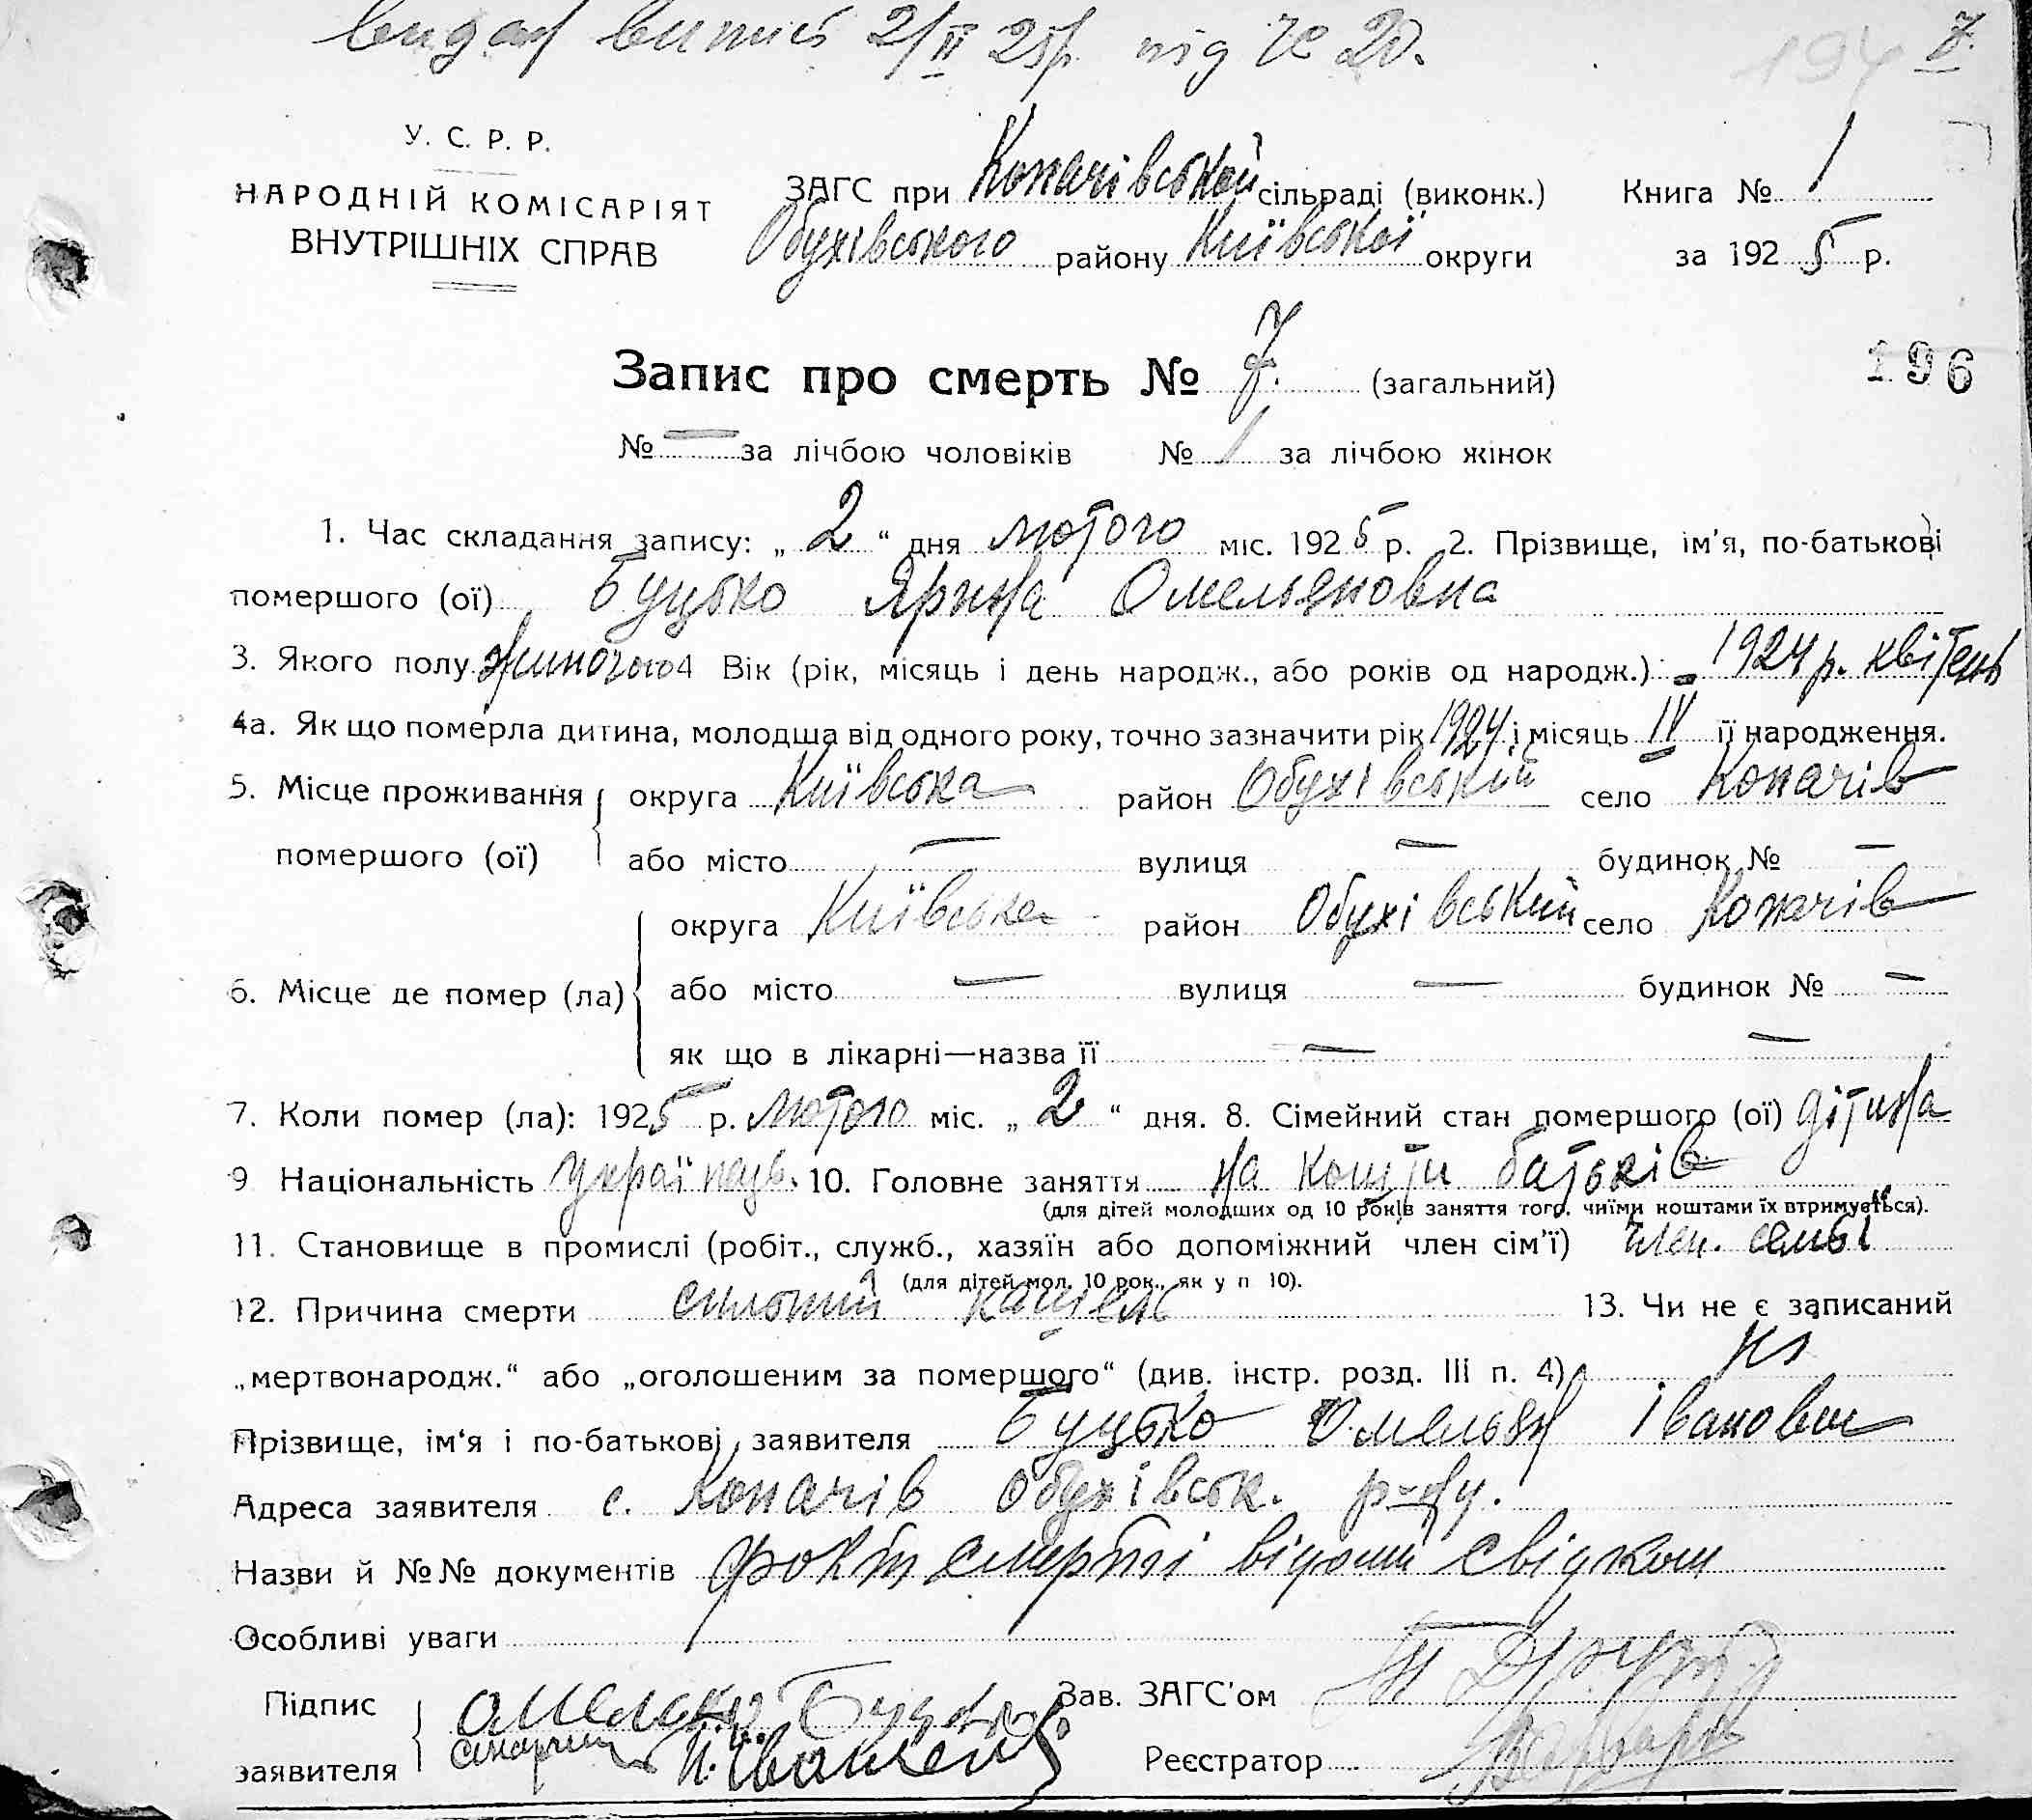 видай випис 2/II 25р. під № 20.
194 7.
У. С. Р. Р.
НАРОДНІЙ КОМІСАРІЯТ
ВНУТРІШНІХ СПРАВ
ЗАГС при Копачівській сільраді (виконк.) Книга № 1
Обухівського району Київської округи за 1925 р.
Запис про смерть № 7. (загальний)
196
№ — за лічбою чоловіків № 1 за лічбою жінок
1. Час складання запису: „2“ дня лютого міс. 1925 р. 2. Прізвище, ім'я, по-батькові
помершого (ої) Буцько Ярина Омельяновна
3. Якого полу жиночого 4 Вік (рік, місяць і день народж., або років од народж.): – 1924 р. квітень
4а. Як що померла дитина, молодша від одного року, точно зазначити рік 1924 і місяць IV її народження.
5. Місце проживання округа Київська район Обухівський село Копачів
помершого (ої) або місто — вулиця — будинок № —
округа Київська район Обухівський село Копачів
6. Місце де помер (ла) або місто — вулиця — будинок № —
як що в лікарні—назва її — —
7. Коли помер (ла): 1925 р. лютого міс. „2“ дня. 8. Сімейний стан помершого (ої) дітина
9 Національність 10. Головне заняття на кошти батьків
(для дітей молодших од 10 років заняття того, чиїми коштами їх втримується).
11. Становище в промислі (робіт., служб., хазяїн або допоміжний член сім'ї) член. семьї
(для дітей мол. 10 рок., як у п 10).
12. Причина смерти кашель 13. Чи не є записаний
„мертвонародж.“ або „оголошеним за помершого“ (див. інстр. розд. III п. 4) ні
Прізвище, ім'я і по-батькові заявителя Буцько Омельян Іванович
Адреса заявителя с. Копачів Обухівськ. р-ну.
Назви й №№ документів факт смерті відомий свідкам
Особливі уваги
Підпис Омелько Буцько Зав. ЗАГС'ом
заявителя Іваненко Реєстратор